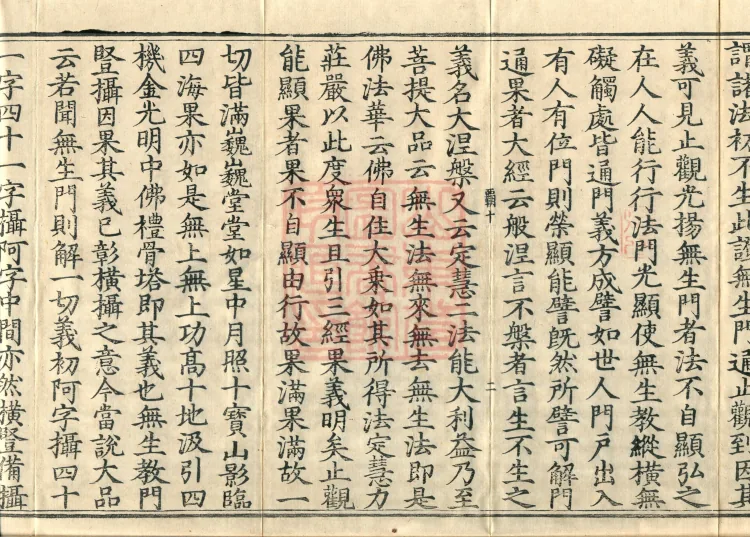 謂諸法初不生此無生門通止觀到因其
義可見止觀光揚無生門者法不自顯弘之
在人人能行行法門光顯使無生教縱橫無
礙觸處皆通門義方成譬如世人門戶出入
有人有位門則榮顯能譬旣然所譬可解門
通果者大經云般涅言不槃者言生不生之
十 二
義名大涅槃又云定慧二法能大利益乃至
菩提大品云無生法無來無去無生法即是
佛法華云佛自住大乗如其所得法定慧力
莊嚴以此度衆生且引三經果義明矣止觀
能顯果者果不自顯由行故果滿果滿故一
切皆滿巍巍堂堂如星中月照十寶山影臨
四海果亦如是無上無上功髙十地汲引四
機金光明中佛禮骨塔即其義也無生教門
豎攝因果其義已彰橫攝之意今當說大品
云若聞無生門則解一切義初阿字攝四十
一字四十一字攝阿字中間亦然橫豎備攝